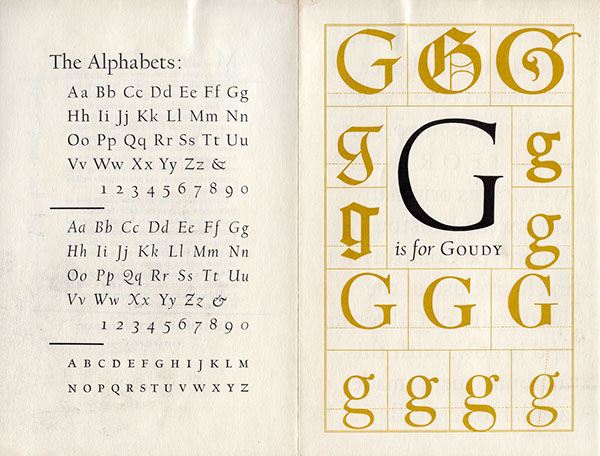 The Alphabets:
Aa Bb Cc Dd Ee Ff Gg
Hh Ii Jj Kk Ll Mm Nn
Oo Pp Qq Rr Ss Tt Uu
Vv Ww Xx Yy Zz &
1 2 3 4 5 6 7 8 9 0
Aa Bb Cc Dd Ee Ff Gg
Hh Ii Jj Kk Ll Mm Nn
Oo Pp Qq Rr Ss Tt Uu
Vv Ww Xx Yy Zz &
1 2 3 4 5 6 7 8 9 0
A B C D E F G H I J K L M
N O P Q R S T U V W X Y Z
G G G
g G g
is for GOUDY
g g
G G G
g g g g